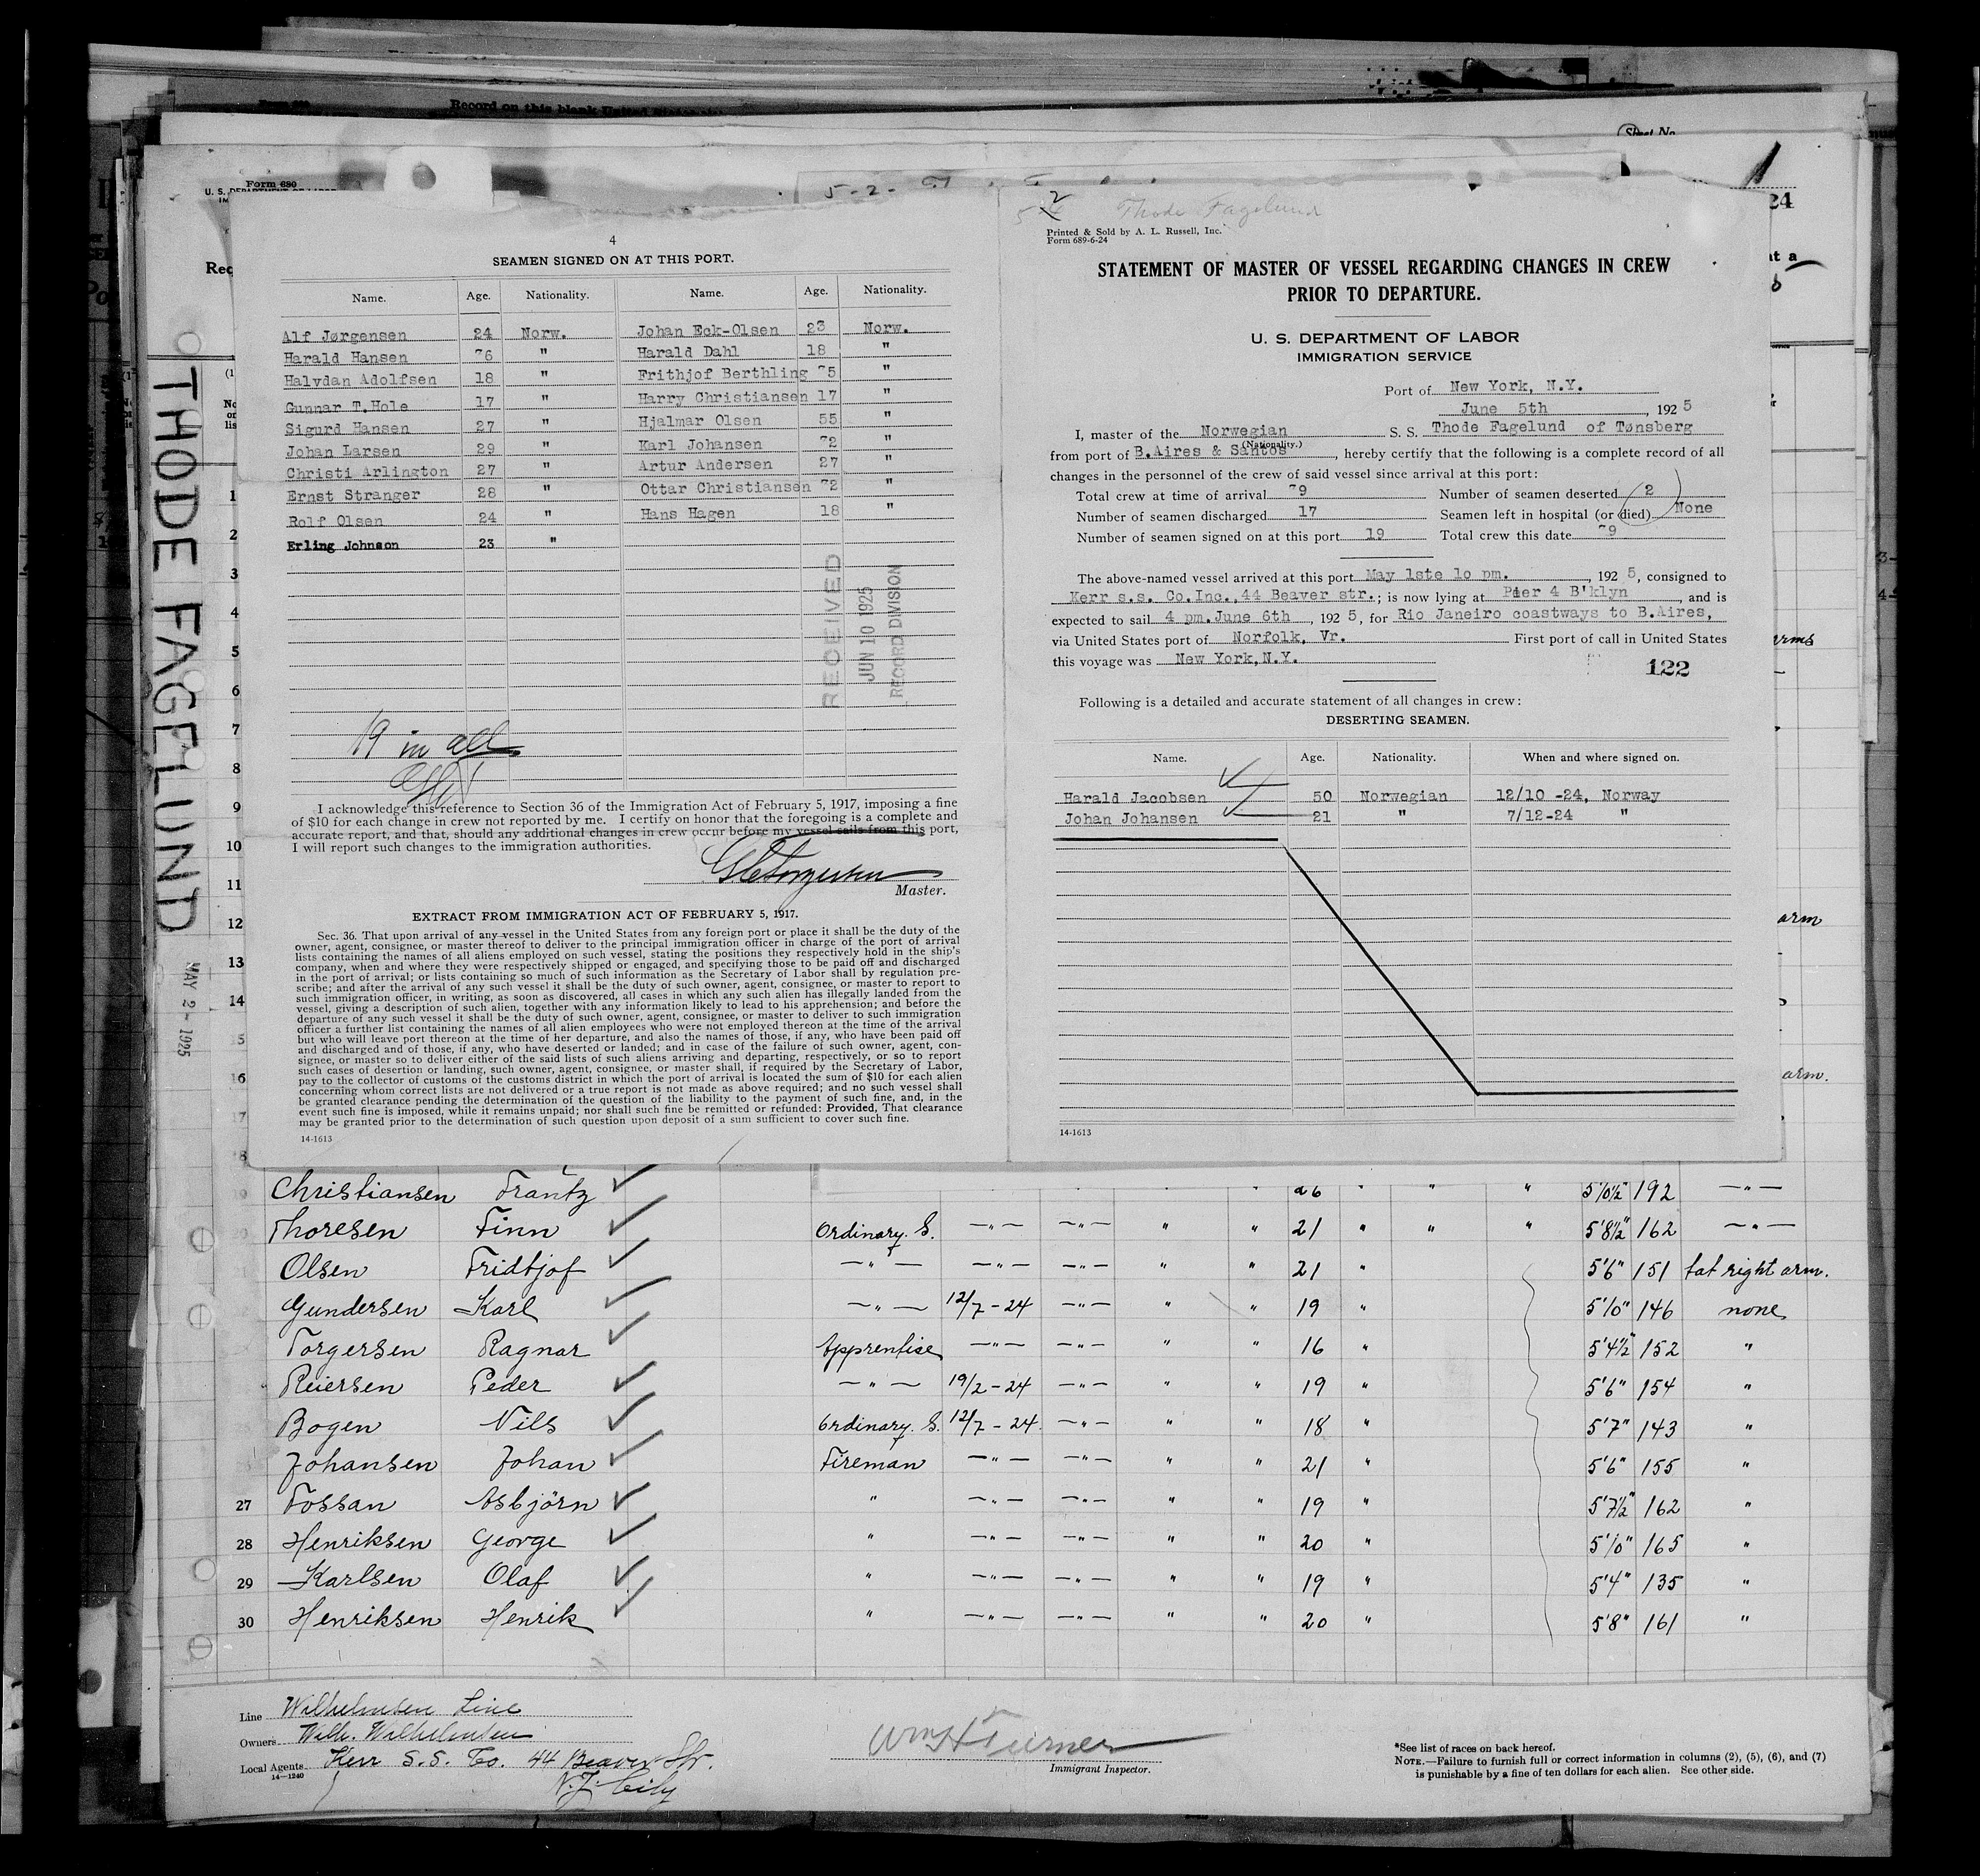 Record on this blank United States
Sheet No.
Form 680
5-2-
THODE FAGELUND
MAY 2 - 1925
4
SEAMEN SIGNED ON AT THIS PORT.
Name. Age. Nationality. Name. Age. Nationality.
Alf Jørgensen 24 Norw. Johan Eck-Olsen 23 Norw.
Harald Hansen 36 " Harald Dahl 18 "
Halvdan Adolfsen 18 " Frithjof Berthling 35 "
Gunnar T.Hole 17 " Harry Christiansen 17 "
Sigurd Hansen 27 " Hjalmar Olsen 55 "
Johan Larsen 29 " Karl Johansen 32 "
Christi Arlington 27 " Artur Andersen 27 "
Ernst Stranger 28 " Ottar Christiansen 32 "
Rolf Olsen 24 " Hans Hagen 18 "
Erling Johnson 23 "
RECEIVED
JUN 10 1925
RECORD DIVISION
19 in all
I acknowledge this reference to Section 36 of the Immigration Act of February 5, 1917, imposing a fine
of $10 for each change in crew not reported by me. I certify on honor that the foregoing is a complete and
accurate report, and that, should any additional changes in crew occur before my vessel sails from this port,
I will report such changes to the immigration authorities.
Master.
EXTRACT FROM IMMIGRATION ACT OF FEBRUARY 5, 1917.
Sec. 36. That upon arrival of any vessel in the United States from any foreign port or place it shall be the duty of the
owner, agent, consignee, or master thereof to deliver to the principal immigration officer in charge of the port of arrival
lists containing the names of all aliens employed on such vessel, stating the positions they respectively hold in the ship's
company, when and where they were respectively shipped or engaged, and specifying those to be paid off and discharged
in the port of arrival; or lists containing so much of such information as the Secretary of Labor shall by regulation pre-
scribe; and after the arrival of any such vessel it shall be the duty of such owner, agent, consignee, or master to report to
such immigration officer, in writing, as soon as discovered, all cases in which any such alien has illegally landed from the
vessel, giving a description of such alien, together with any information likely to lead to his apprehension; and before the
departure of any such vessel it shall be the duty of such owner, agent, consignee, or master to deliver to such immigration
officer a further list containing the names of all alien employees who were not employed thereon at the time of the arrival
but who will leave port thereon at the time of her departure, and also the names of those, if any, who have been paid off
and discharged and of those, if any, who have deserted or landed; and in case of the failure of such owner, agent, con-
signee, or master so to deliver either of the said lists of such aliens arriving and departing, respectively, or so to report
such cases of desertion or landing, such owner, agent, consignee, or master shall, if required by the Secretary of Labor,
pay to the collector of customs of the customs district in which the port of arrival is located the sum of $10 for each alien
concerning whom correct lists are not delivered or a true report is not made as above required; and no such vessel shall
be granted clearance pending the determination of the question of the liability to the payment of such fine, and, in the
event such fine is imposed, while it remains unpaid; nor shall such fine be remitted or refunded: Provided, That clearance
may be granted prior to the determination of such question upon deposit of a sum sufficient to cover such fine.
14-1613
Thode Fagelund
Printed & Sold by A. L. Russell, Inc.
Form 689-6-24
STATEMENT OF MASTER OF VESSEL REGARDING CHANGES IN CREW
PRIOR TO DEPARTURE.
U. S. DEPARTMENT OF LABOR
IMMIGRATION SERVICE
Port of New York, N.Y.
June 5th, 1925
I, master of the Norwegian S. S. Thode Fagelund of Tønsberg
(Nationality.)
from port of B.Aires & Santos, hereby certify that the following is a complete record of all
changes in the personnel of the crew of said vessel since arrival at this port:
Total crew at time of arrival 39 Number of seamen deserted 2
Number of seamen discharged 17 Seamen left in hospital (or died) None
Number of seamen signed on at this port 19 Total crew this date 39
The above-named vessel arrived at this port May 1ste 1o pm., 1925, consigned to
Kerr s.s. Co.Inc.,44 Beaver str.; is now lying at Pier 4 B'klyn, and is
expected to sail 4 pm.June 6th, 1925, for Rio Janeiro coastways to B.Aires,
via United States port of Norfolk, Vr. First port of call in United States
this voyage was New York,N.Y.
122
Following is a detailed and accurate statement of all changes in crew:
DESERTING SEAMEN.
Name. Age. Nationality. When and where signed on.
Harald Jacobsen 50 Norwegian 12/10 -24, Norway
Johan Johansen 21 " 7/12-24 "
14-1613
Christiansen Frantz 26 " " " 5'10½" 192 —"—
Thoresen Finn Ordinary. S. —"— —"— " " 21 " " " 5'8½" 162 —"—
Olsen Fridtjof —"— —"— —"— " " 21 " 5'6" 151 tat right arm.
Gundersen Karl —"— 12/7-24 —"— " " 19 " 5'10" 146 none
Torgersen Ragnar Apprentise —"— —"— " " 16 " 5'4½" 152 "
Reiersen Peder —"— 19/2-24 —"— " " 19 " 5'6" 154 "
Bogen Nils Ordinary. S. 12/7-24. —"— " " 18 " 5'7" 143 "
Johansen Johan Fireman —"— —"— " " 21 " 5'6" 155 "
27 Fossan Asbjörn " —"— —"— " " 19 " 5'7½" 162 "
28 Henriksen George " —"— —"— " " 20 " 5'10" 165 "
29 Karlsen Olaf " —"— —"— " " 19 " 5'4" 135 "
30 Henriksen Henrik " —"— —"— " " 20 " 5'8" 161 "
Line Wilhelmsen Line
Owners Wilh. Wilhelmsen
Local Agents Kerr S.S. Co. 44 Beaver Str.
14-1240
N.Y. City
Wm H Turner
Immigrant Inspector.
*See list of races on back hereof.
NOTE.—Failure to furnish full or correct information in columns (2), (5), (6), and (7)
is punishable by a fine of ten dollars for each alien. See other side.